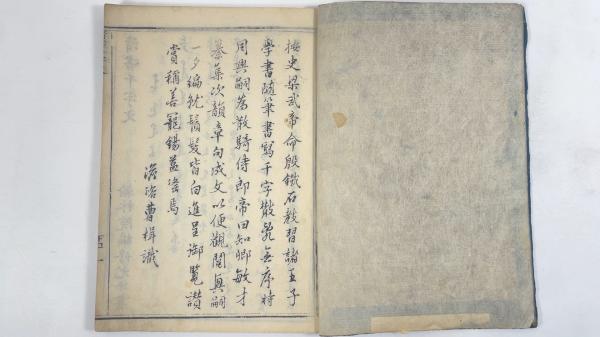 按史梁武帝命殷鐵石教習諸王子
學書隨筆書寫千字散亂無序時
周興嗣為散騎侍郎帝曰知卿敏才
纂集次韻章句成文以便觀閱興嗣
一夕編就鬚髮皆白進呈御覽讚
賞稱善寵錫益渥焉
曹楫識